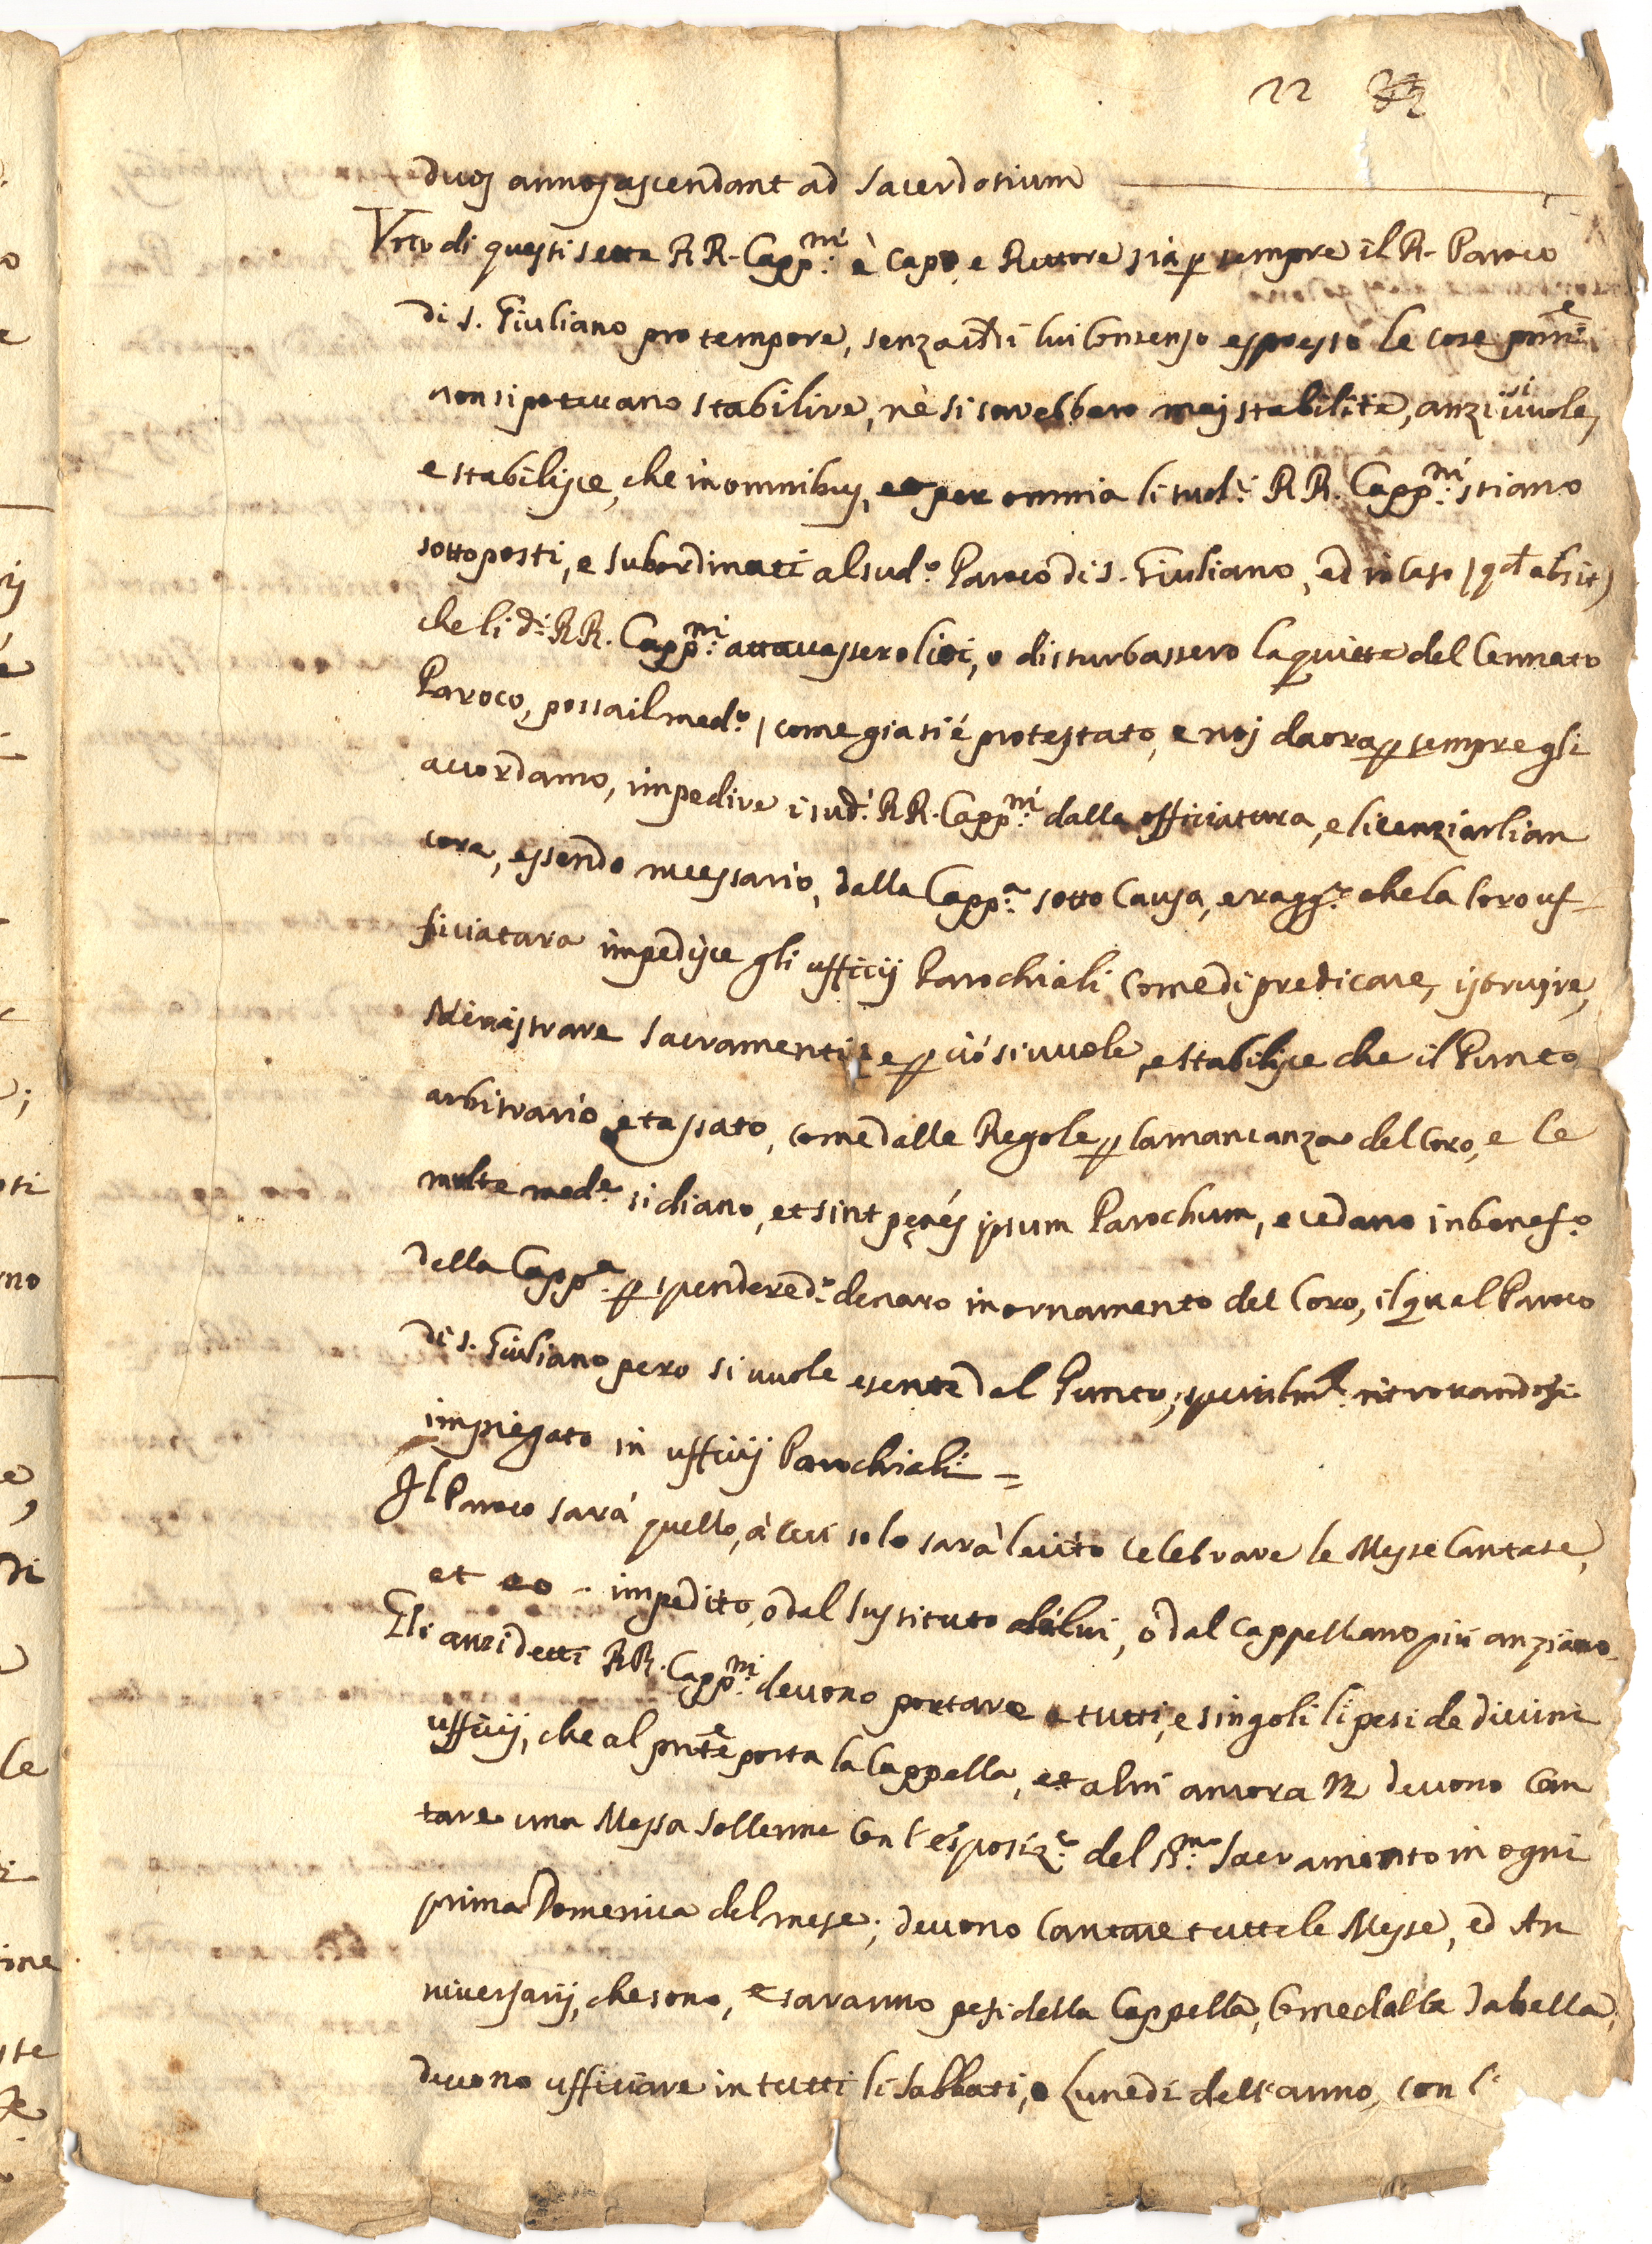 22
duos annos ascendant ad Sacerdotium
Uno di questi sette RR. Capp.ni è Capo, e Rettore sia p sempre il R. Paroco
di S. Giuliano pro tempore, senza il di lui Consenso espresso le cose pnti
non si potevano stabilire, nè si sarebbero mai stabilite, anzi si vuole,
e stabilisce, che in omnibus, et per omnia li sud.i RR. Capp.ni stiano
sottoposti, e subordinati al sud.o Paroco di S. Giuliano, ed in Caso (qd absit)
che li d.i RR. Capp.ni attacassero liti, o disturbassero la quiete del Cennato
Paroco, possa il med.o, come gia si é protestato, e noi da ora p sempre gli
accordamo, impedire i sud.i RR. Capp.ni dalla officiatura, e licenziarli an
cora, essendo necessario, dalla Capp.a sotto Causa, e ragg.e che la loro uf-
ficiatura impedisce gli ufficij Parochiali Come di predicare, istruire,
Ministrare Sacramenti, e p ció si vuole, e stabilisce che il Punto
arbitrario, e tassato, come dalle Regole p la mancanza del Coro, e le
multe med.e si diano, et sint penés ipsum Parochum, e cedano in benef.o
della Capp.a p spendere d.o denaro in ornamento del Coro, il qual Paroco
di S. Giuliano pero si vuole esente dal Punto, specialm.e ritrovandosi
impiegato in ufficij Parochiali =
Il Paroco sará quello, à Cui solo sarà lecito celebrare le Messe Cantate,
et eo - impedito, ò dal Sustituto di lui, ò dal Cappellano più anziano
Gli anzidetti RR. Capp.ni devono portare tutti, e singoli li pesi de divini
ufficij, che al pnte porta la Cappella, et alii ancora devono Can
tare una Messa Sollenne Con l'esposiz.e del SS.mo Sacramento in ogni
prima Domenica del mese; devono Cantare tutte le Messe, ed An
niversarij, che sono, e saranno pesi della Cappella, Come dalla Tabella,
devono ufficiare in tutti li Sabbati, e Lunedi dell'anno, con l'